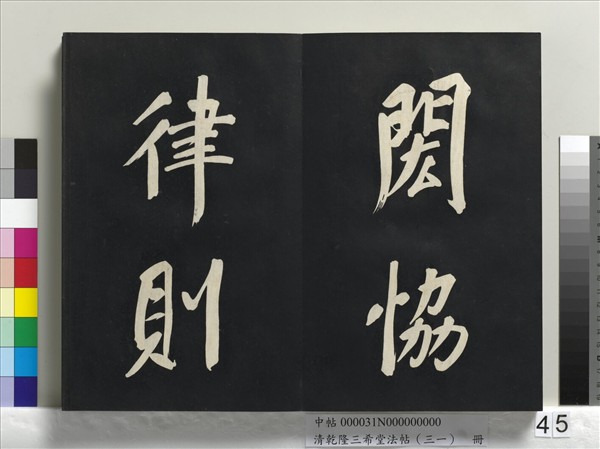 閎恊
律則
中帖 000031N000000000
清乾隆三希堂法帖（三一） 冊
45